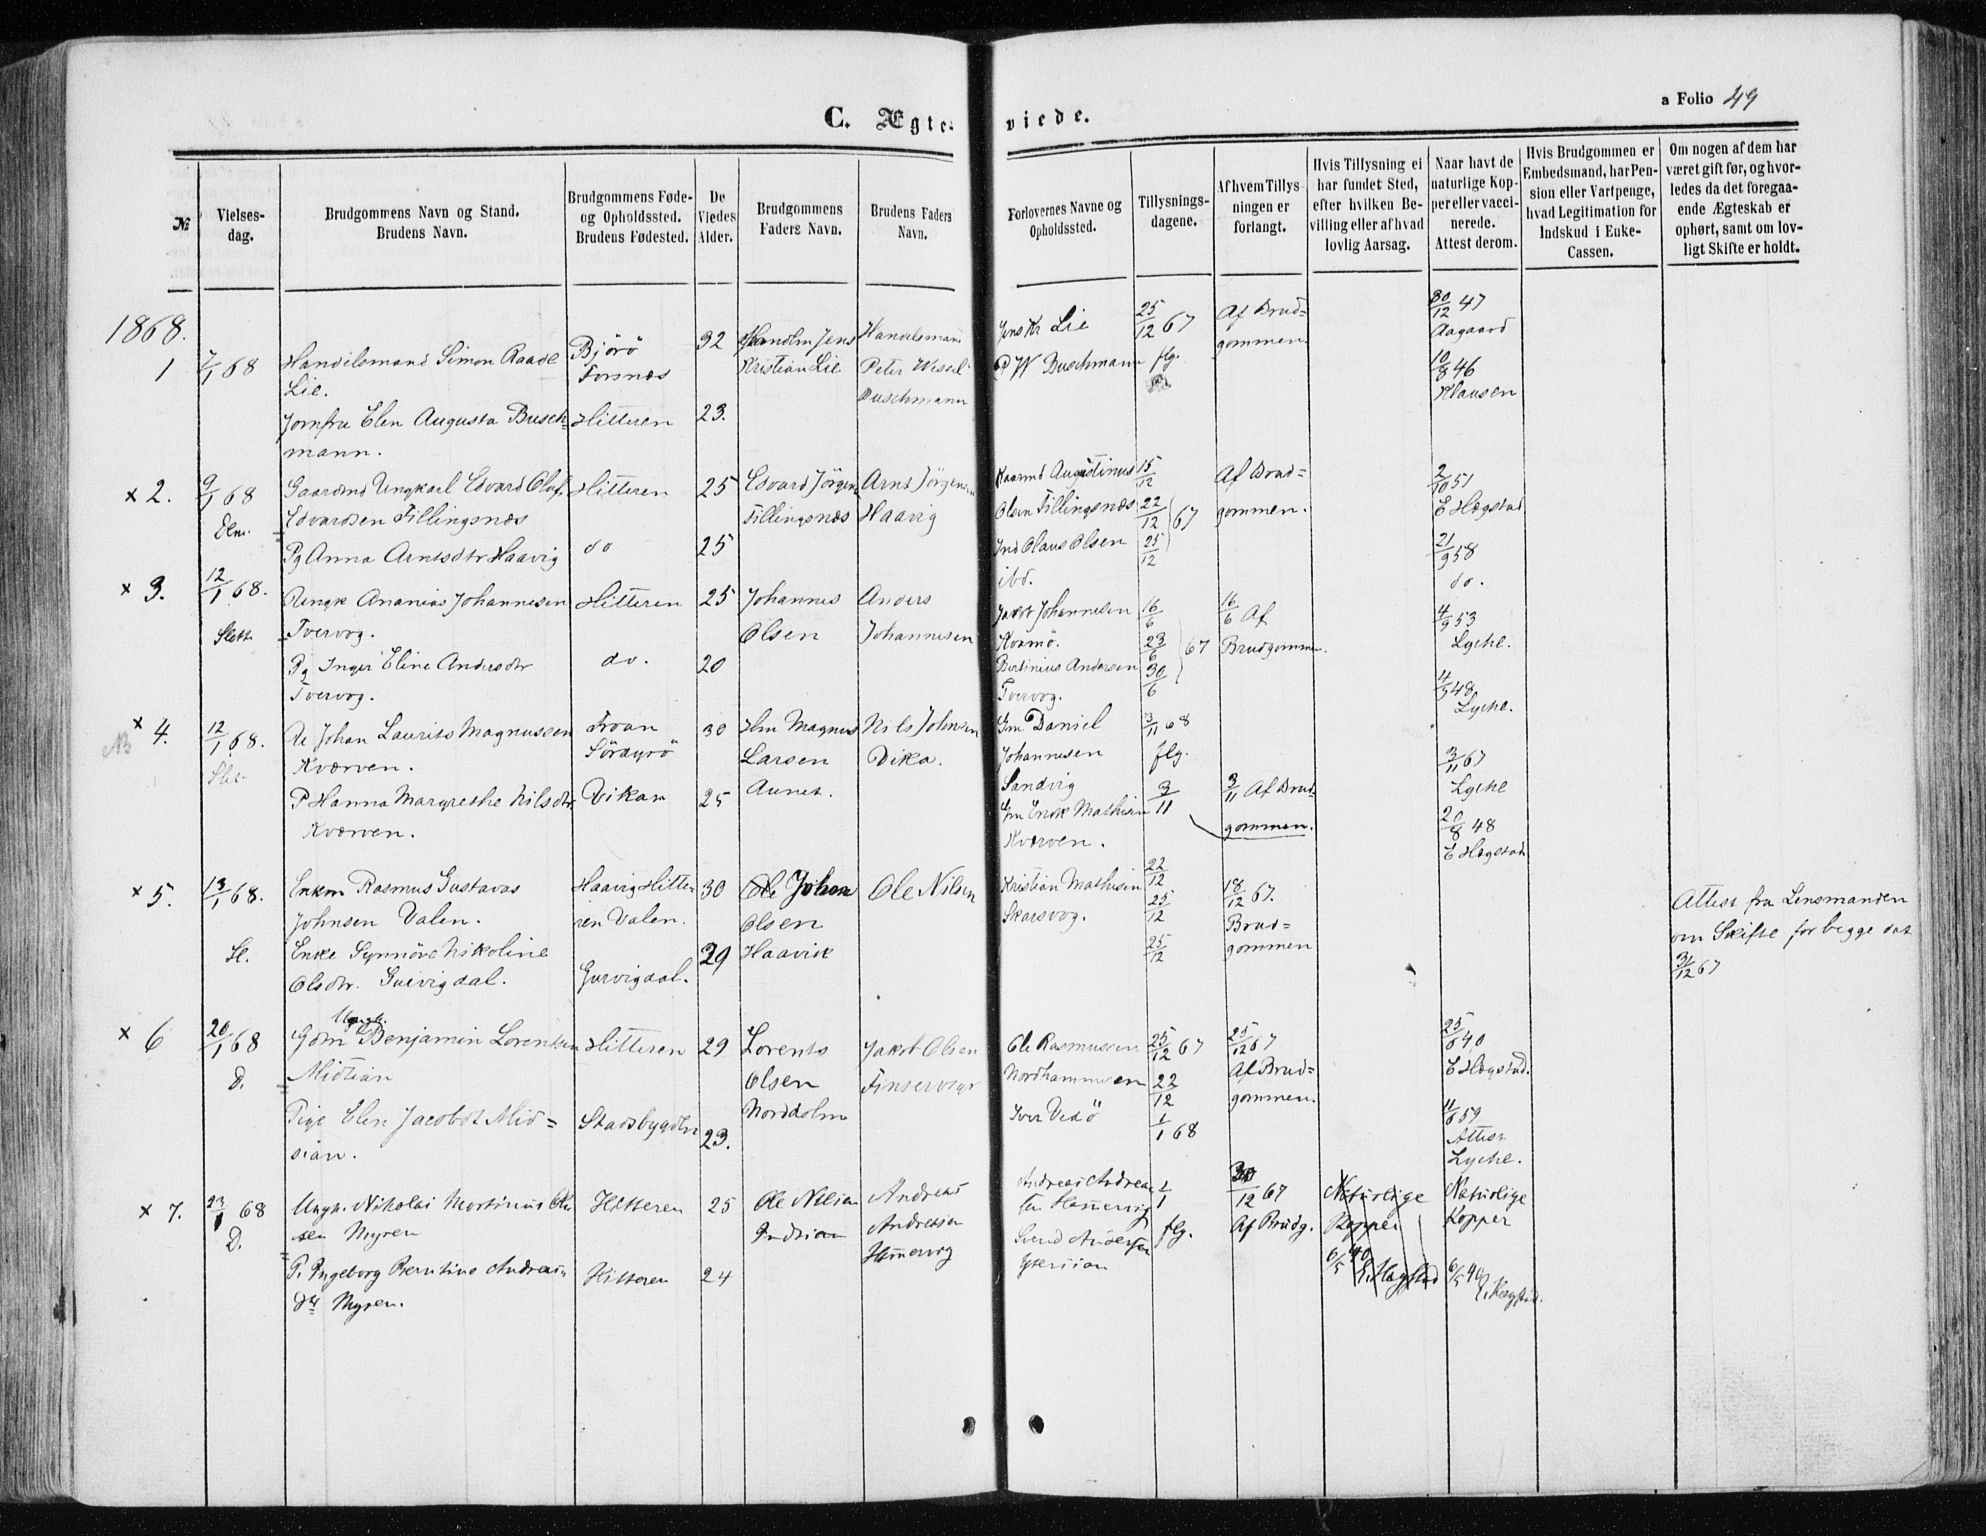 C. Ægteviede.
a Folio 49
№
Vielses-
dag.
Brudgommens Navn og Stand.
Brudens Navn.
Brudgommens Føde-
og Opholdssted.
Brudens Fødested.
De
Viedes
Alder.
Brudgommens
Faders Navn.
Brudens Faders
Navn.
Forlovernes Navne og
Opholdssted.
Tillysnings-
dagene.
Af hvem Tillys-
ningen er
forlangt.
Hvis Tillysning ei
har fundet Sted,
efter hvilken Be-
villing eller af hvad
lovlig Aarsag.
Naar havt de
naturlige Kop-
per eller vacci-
nerede.
Attest derom.
Hvis Brudgommen er
Embedsmand, har Pen-
sion eller Vartpenge,
hvad Legitimation for
Indskud i Enke-
Cassen.
Om nogen af dem har
været gift før, og hvor-
ledes da det foregaa-
ende Ægteskab er
ophørt, samt om lov-
ligt Skifte er holdt.
1868.
1
7/1 68
Handelsmand Simon Raade
Lie.
Jomfru Elen Augusta Busch-
mann.
Bjørö
Forsnæs
Hitteren
32
23.
Handlm Jens
Kristian Lie
Handelsmann
Peter Wessel
Buschmann
Jens Kr Lie
P W Buschmann
25/12 67
flg.
Af Brud-
gommen.
30/12 47
Aagaard
10/8 46
Klausen
x 2.
9/1 68
Gaardmd Ungkarl Edvard Olaf
Edvardsen Fillingsnæs
Pg Anna Arntsdtr Haavig
Hitteren
do
25
25
Edvard Jörgen
Fillingsnæs
Arnt Jörgensen
Haavig
Kaarmd Augustinus
Olsen Fillingsnæs
Ind Claus Olsen
ibd.
15/12
22/12 67
25/12
Af Brud-
gommen.
2/10 51
E Hegstad
21/9 58
do.
x 3.
12/1 68.
Slett
Ungk Ananias Johannesen
Tvervog.
Pg Inger Eline Andersdtr
Tvervog.
Hitteren
do.
25
20
Johannes
Olsen
Anders
Johannesen
Jakob Johannesen
Kosmö.
Bertinius Andersen
Tvervog.
16/6
23/6 67
30/6
16/6 Af
Brudgommen.
4/9 53
Lyche.
4/9 48.
Lyche.
x 4.
NB
12/1 68.
Johan Laurits Magnussen
Kværven.
P Hanna Margrethe Nilsdtr
Kværven.
Froan
Sördyrö
Vikan
30
25
Hm Magnus
Larsen
Aunet.
Nils Johnsen
Vika.
Gm Daniel
Johannesen
Sandvig
Gm Enok Mathisen
Kværven.
3/11 68
flg.
3/11
3/11 Af Brud-
gommen.
3/11 67
Lyche
20/8 48
E Hegstad
x 5.
13/1 68.
Sl.
Enkm Rasmus Gustavas
Johnsen Valen.
Enke Synnöve Nikoline
Olsdtr. Gurvigdal.
Haavig Hitte-
ren Valen.
Gurvigdal.
30
29
Ole Johan
Olsen
Haavik
Ole Nilsen
Kristian Mathisen
Skarsvog.
22/12
25/12
25/12
18/12 67.
Brud-
gommen
Attest fra Lensmanden
om Skifte for begge dat
31/12 67
x 6
20/1 68
D.
Ungk.
Gdm Benjamin Lorentsen
Midtian
Pige Elen Jacobdt Mid-
sian.
Hitteren
Stadsbygden
29
23.
Lorents
Olsen
Norddolm
Jakob Olsen
Ole Rasmussen
Nordhammeren
Iver Vedö
25/12 67
22/12
1/1 68
25/12 67
Af Brud-
gommen.
25/6 40
E Hegstad.
11/6 59
Attest
Lyche.
x 7.
23/1 68
D.
Ungk. Nikolai Martinus Ol-
sen Myren
P. Ingeborg Berntine Andreas-
dtr Myren.
Hitteren
Hitteren
25
24
Ole Nilsen
Indsian
Andreas
Andresen
Hamervig
Andreas Andrea-
sen Hamervig
Svend Andersen
Ytersian
1/1
flg.
30/12 67
Af Brudg.
Naturlige
Kopper
6/5 40
E. Hagstad
Naturlige
Kopper
6/5 40
E. Hegstad.